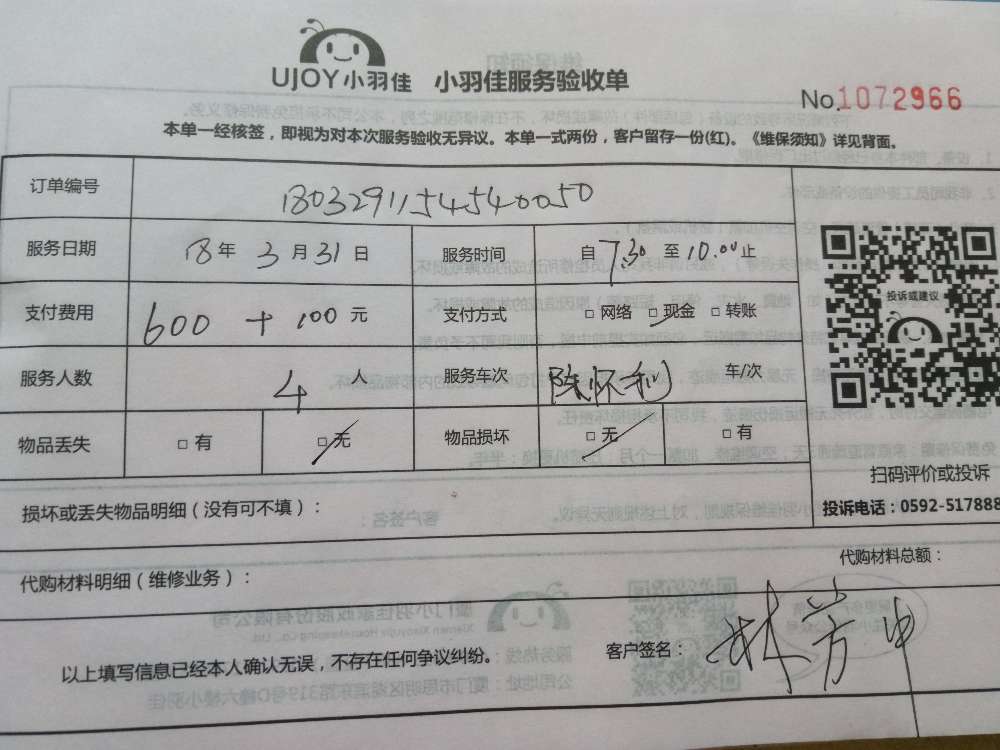 UJOY小羽佳 小羽佳服务验收单
No.1072966
本单一经核签，即视为对本次服务验收无异议。本单一式两份，客户留存一份(红)。《维保须知》详见背面。
订单编号 180329115454540050
服务日期 18年 3月31日 服务时间 自7.30至10.00止
支付费用 600 + 100元 支付方式 □ 网络 □ 现金 □ 转账
投诉或建议
服务人数 4人 服务车次 陈怀利 车/次
物品丢失 □ 有 □ 无 物品损坏 □ 无 □ 有
扫码评价或投诉
损坏或丢失物品明细（没有可不填）： 投诉电话：0592-517888
代购材料明细（维修业务）： 代购材料总额：
以上填写信息已经本人确认无误，不存在任何争议纠纷。 客户签名：林芳